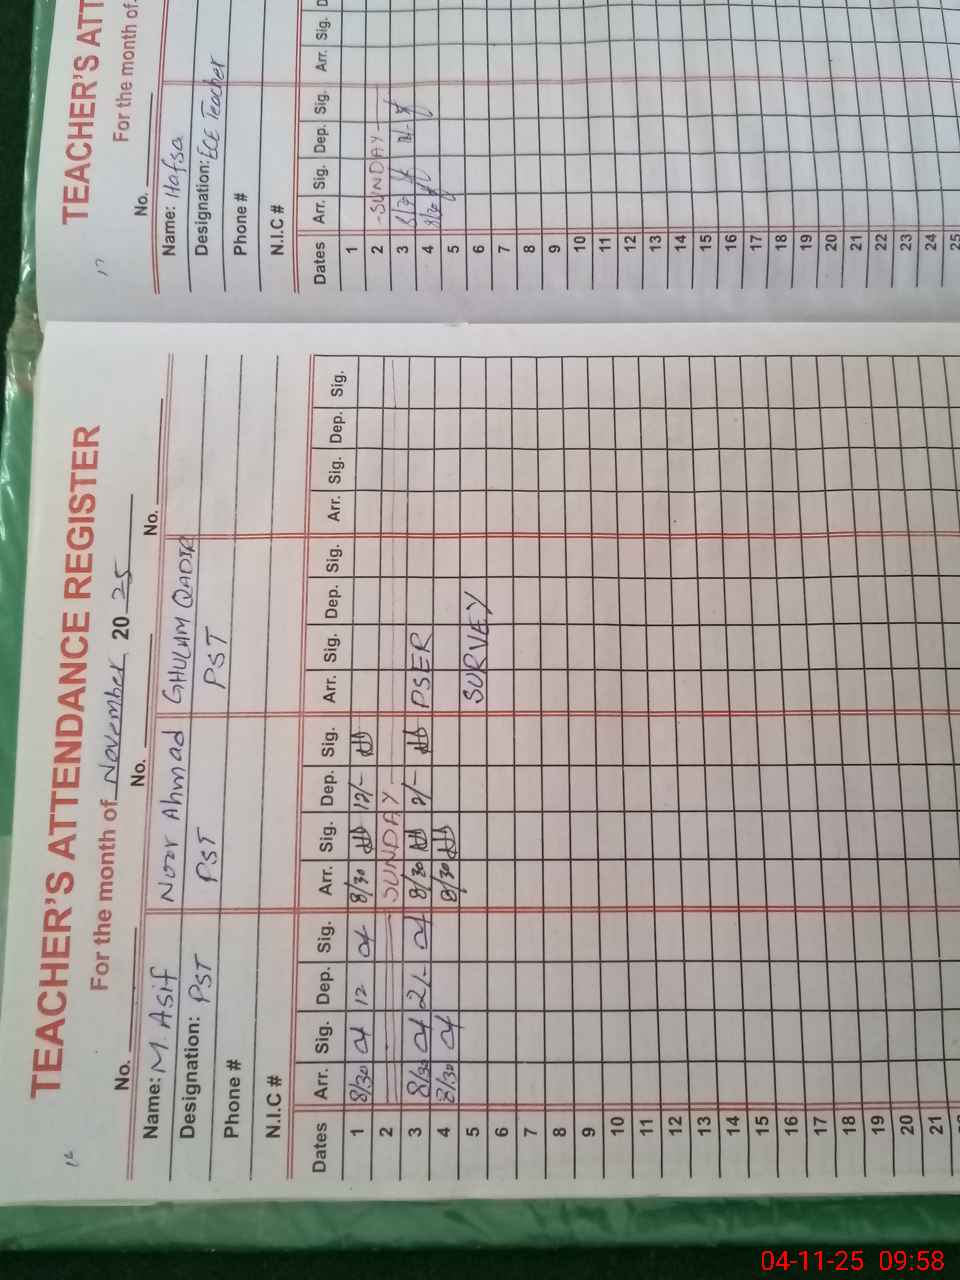 TEACHER'S ATTENDANCE REGISTER
For the month of November 2025
No. No. No.
Name: M. Asif Noor Ahmad GHULAM QADIR
Designation: PST PST PST
Phone #
N.I.C #
Dates Arr. Sig. Dep. Sig. Arr. Sig. Dep. Sig. Arr. Sig. Dep. Sig. Arr. Sig. Dep. Sig.
1 8/30 12 8/30 12/-
2 SUNDAY
3 8/30 2/- 8/30 2/- PSER
4 8/30 8/30
5 SURVEY
6
7
8
9
10
11
12
13
14
15
16
17
18
19
20
21
17
TEACHER'S ATT
For the month of
No.
Name: Hafsa
Designation: ECE Teacher
Phone #
N.I.C #
Dates Arr. Sig. Dep. Sig. Arr. Sig.
1
2 -SUNDAY-
3
4 8/30
5
6
7
8
9
10
11
12
13
14
15
16
17
18
19
20
21
22
23
24
25
04-11-25 09:58